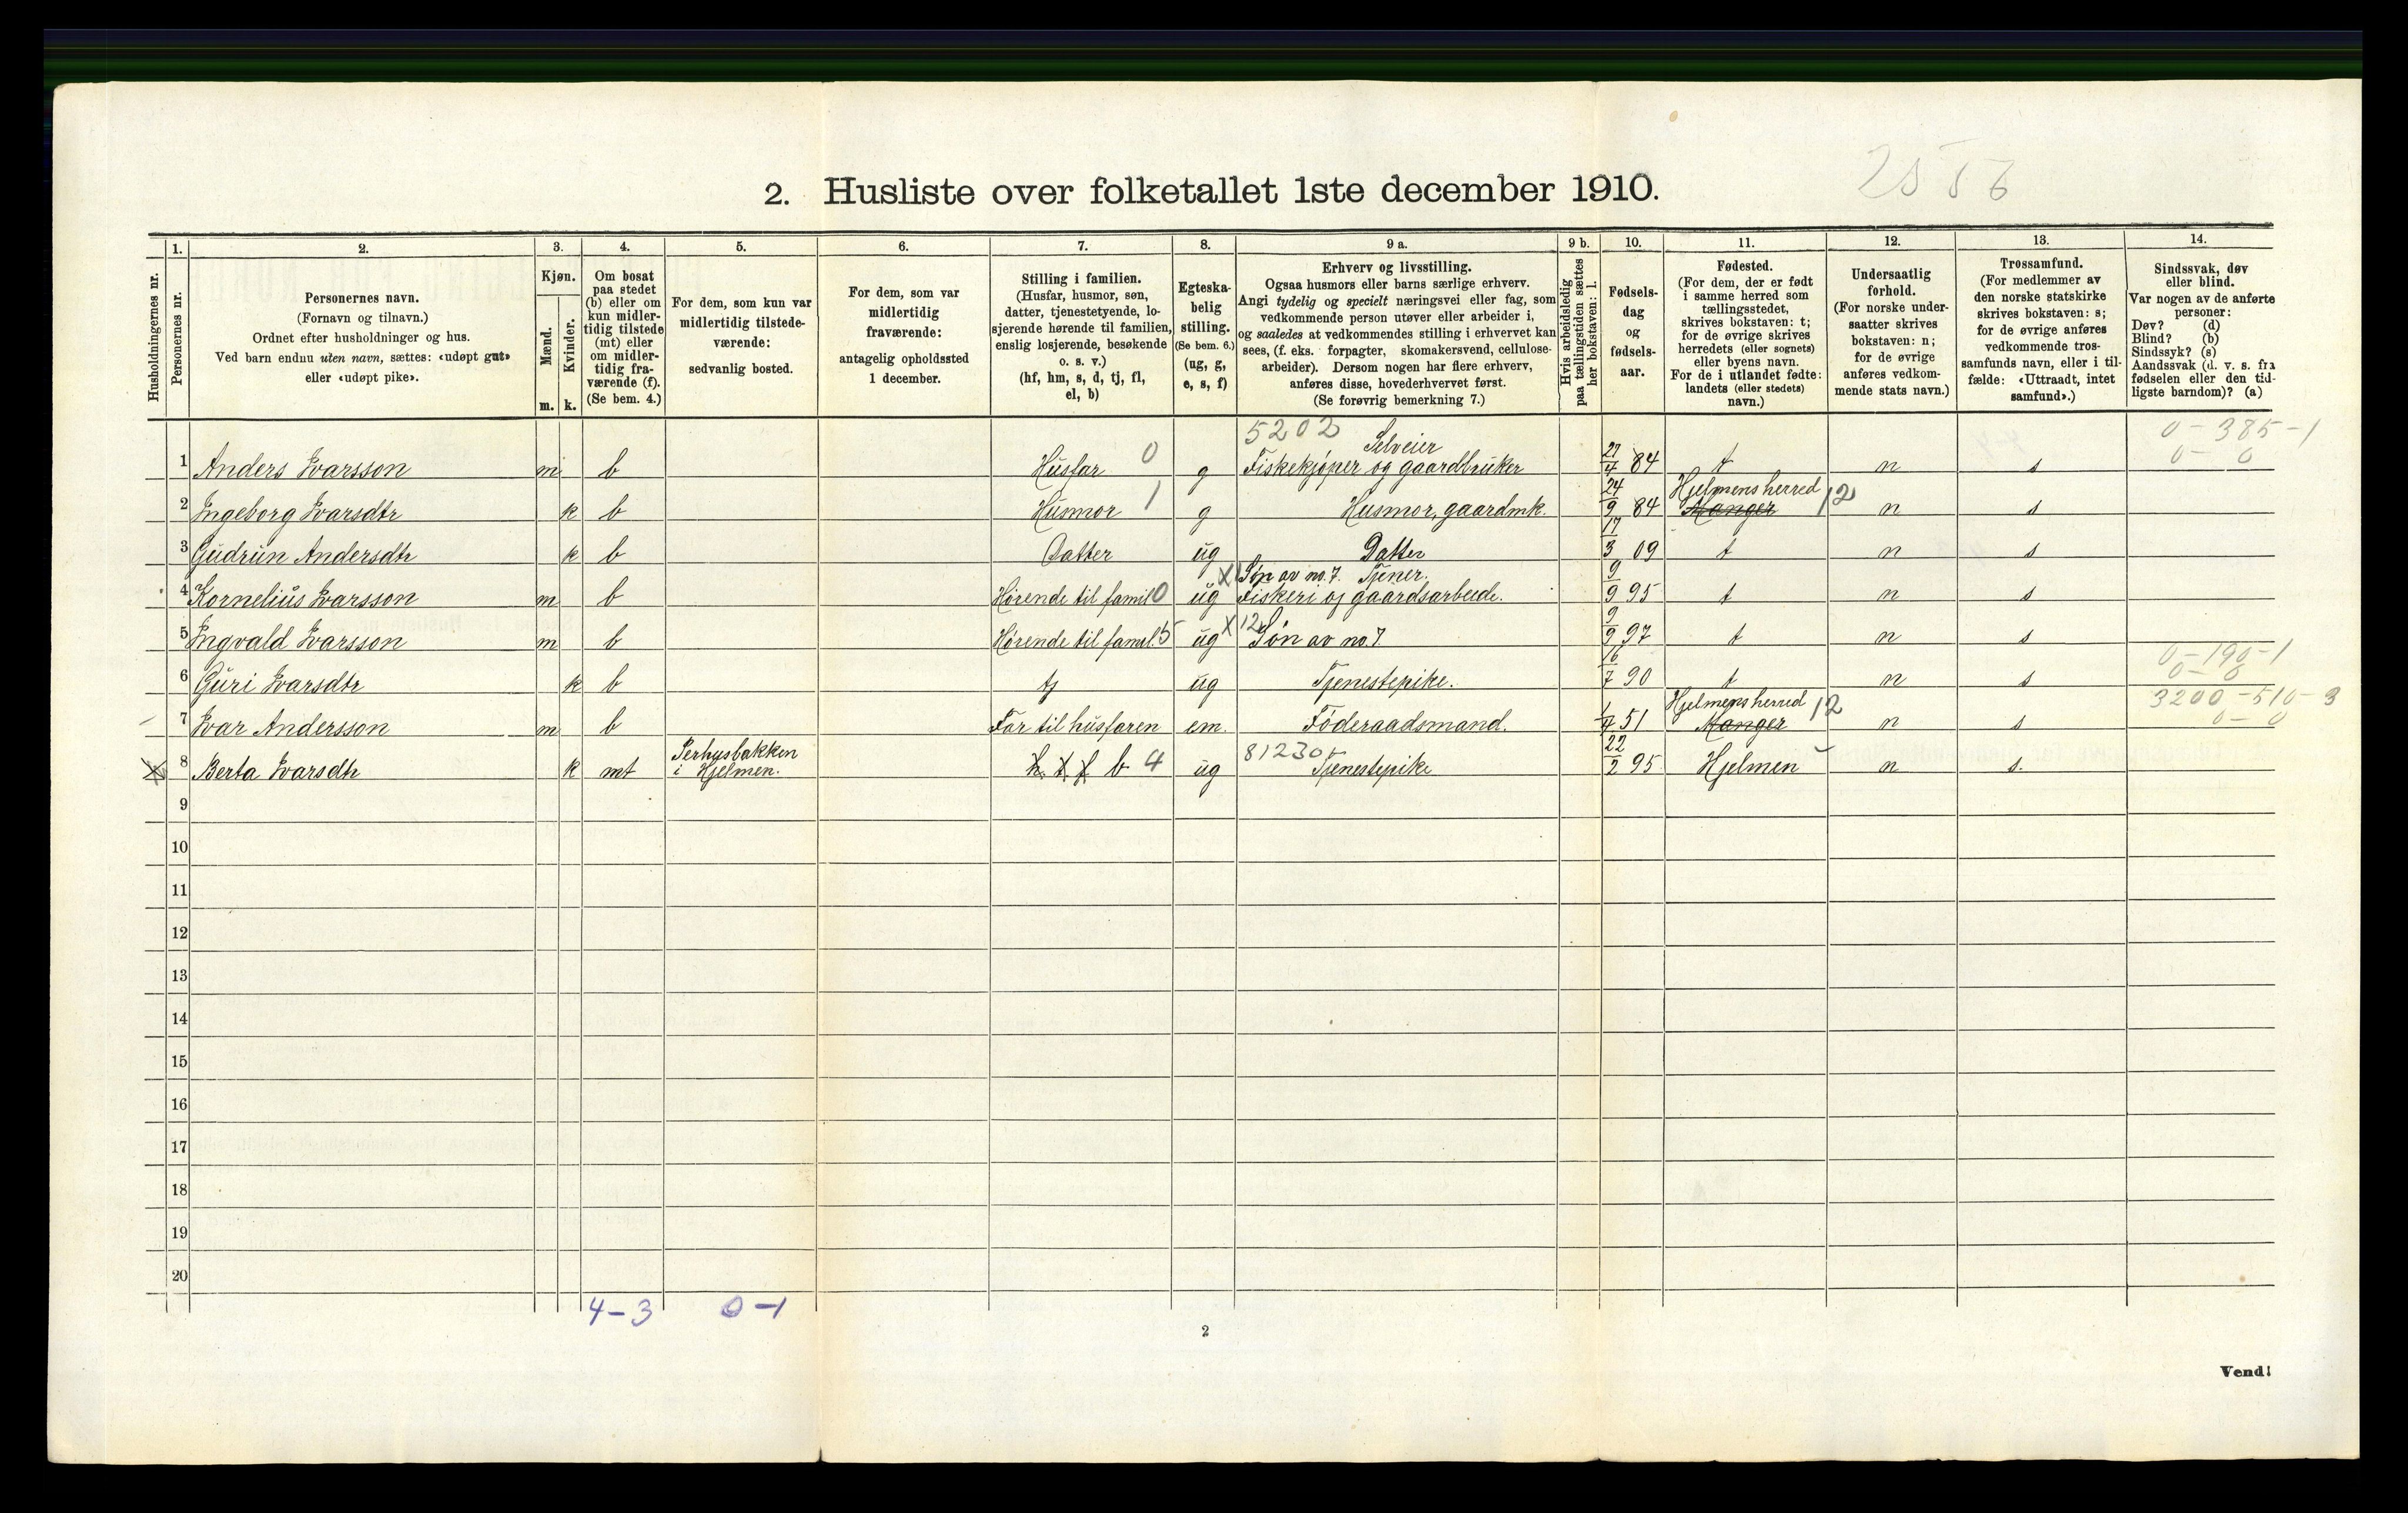 2556
2. Husliste over folketallet 1ste december 1910.
1. 2. 3. 4. 5. 6. 7. 8. 9 a. 9 b. 10. 11. 12. 13. 14.
Husholdningernes nr.
Personernes nr.
Personernes navn.
(Fornavn og tilnavn.)
Ordnet efter husholdninger og hus.
Ved barn endnu uten navn, sættes: «udøpt gut»
eller «udøpt pike».
Kjøn.
Mænd.
Kvinder.
m. k.
Om bosat
paa stedet
(b) eller om
kun midler-
tidig tilstede
(mt) eller
om midler-
tidig fra-
værende (f).
(Se bem. 4.)
For dem, som kun var
midlertidig tilstede-
værende:
sedvanlig bosted.
For dem, som var
midlertidig
fraværende:
antagelig opholdssted
1 december.
Stilling i familien.
(Husfar, husmor, søn,
datter, tjenestetyende, lo-
sjerende hørende til familien,
enslig losjerende, besøkende
o. s. v.)
(hf, hm, s, d, tj, fl,
el, b)
Egteska-
belig
stilling.
(Se bem. 6.)
(ug, g,
e, s, f)
Erhverv og livsstilling.
Ogsaa husmors eller barns særlige erhverv.
Angi tydelig og specielt næringsvei eller fag, som
vedkommende person utøver eller arbeider i,
og saaledes at vedkommendes stilling i erhvervet kan
sees, (f. eks. forpagter, skomakersvend, cellulose-
arbeider). Dersom nogen har flere erhverv,
anføres disse, hovederhvervet først.
(Se forøvrig bemerkning 7.)
Hvis arbeidsledig
paa tællingstiden sættes
her bokstaven: l.
Fødsels-
dag
og
fødsels-
aar.
Fødested.
(For dem, der er født
i samme herred som
tællingsstedet,
skrives bokstaven: t;
for de øvrige skrives
herredets (eller sognets)
eller byens navn.
For de i utlandet fødte:
landets (eller stedets)
navn.)
Undersaatlig
forhold.
(For norske under-
saatter skrives
bokstaven: n;
for de øvrige
anføres vedkom-
mende stats navn.)
Trossamfund.
(For medlemmer av
den norske statskirke
skrives bokstaven: s;
for de øvrige anføres
vedkommende tros-
samfunds navn, eller i til-
fælde: «Uttraadt, intet
samfund».)
Sindssvak, døv
eller blind.
Var nogen av de anførte
personer:
Døv? (d)
Blind? (b)
Sindssyk? (s)
Aandssvak (d. v. s. fra
fødselen eller den tid-
ligste barndom)? (a)
5202 Selveier 0-385-1
1 Anders Ivarsson m b Husfar 0 g Fiskekjøper og gaardbruker 27/4 84 t n s 0-0
Hjelmens herred
2 Ingeborg Ivarsdtr k b Husmor 1 g Husmor, gaardmk. 24/9 84 Manger 12 n s
3 Gudrun Andersdtr k b Datter ug Datter 17/3 09 t n s
X Søn av no. 7. Tjener.
4 Kornelius Ivarsson m b Hørende til famil 0 ug Fiskeri og gaardsarbeide. 9/9 95 t n s
5 Ingvald Ivarsson m b Hørende til famil. 5 ug X 12 Søn av no. 7 9/9 97 t n s
0-190-1
6 Guri Ivarsdtr k b tj ug Tjenestepike. 16/7 90 t n s 0-0
Hjelmens herred 3200-510-3
7 Ivar Andersson m b Far til husfaren em. Føderaadsmand. 1/4 51 Manger 12 n s 0-0
Perhusbakken 81230
X 8 Berta Ivarsdtr k mt i Hjelmen. b 4 ug Tjenestepike 22/2 95 Hjelmen n s.
9
10
11
12
13
14
15
16
17
18
19
20
4-3 0-1
2
Vend!